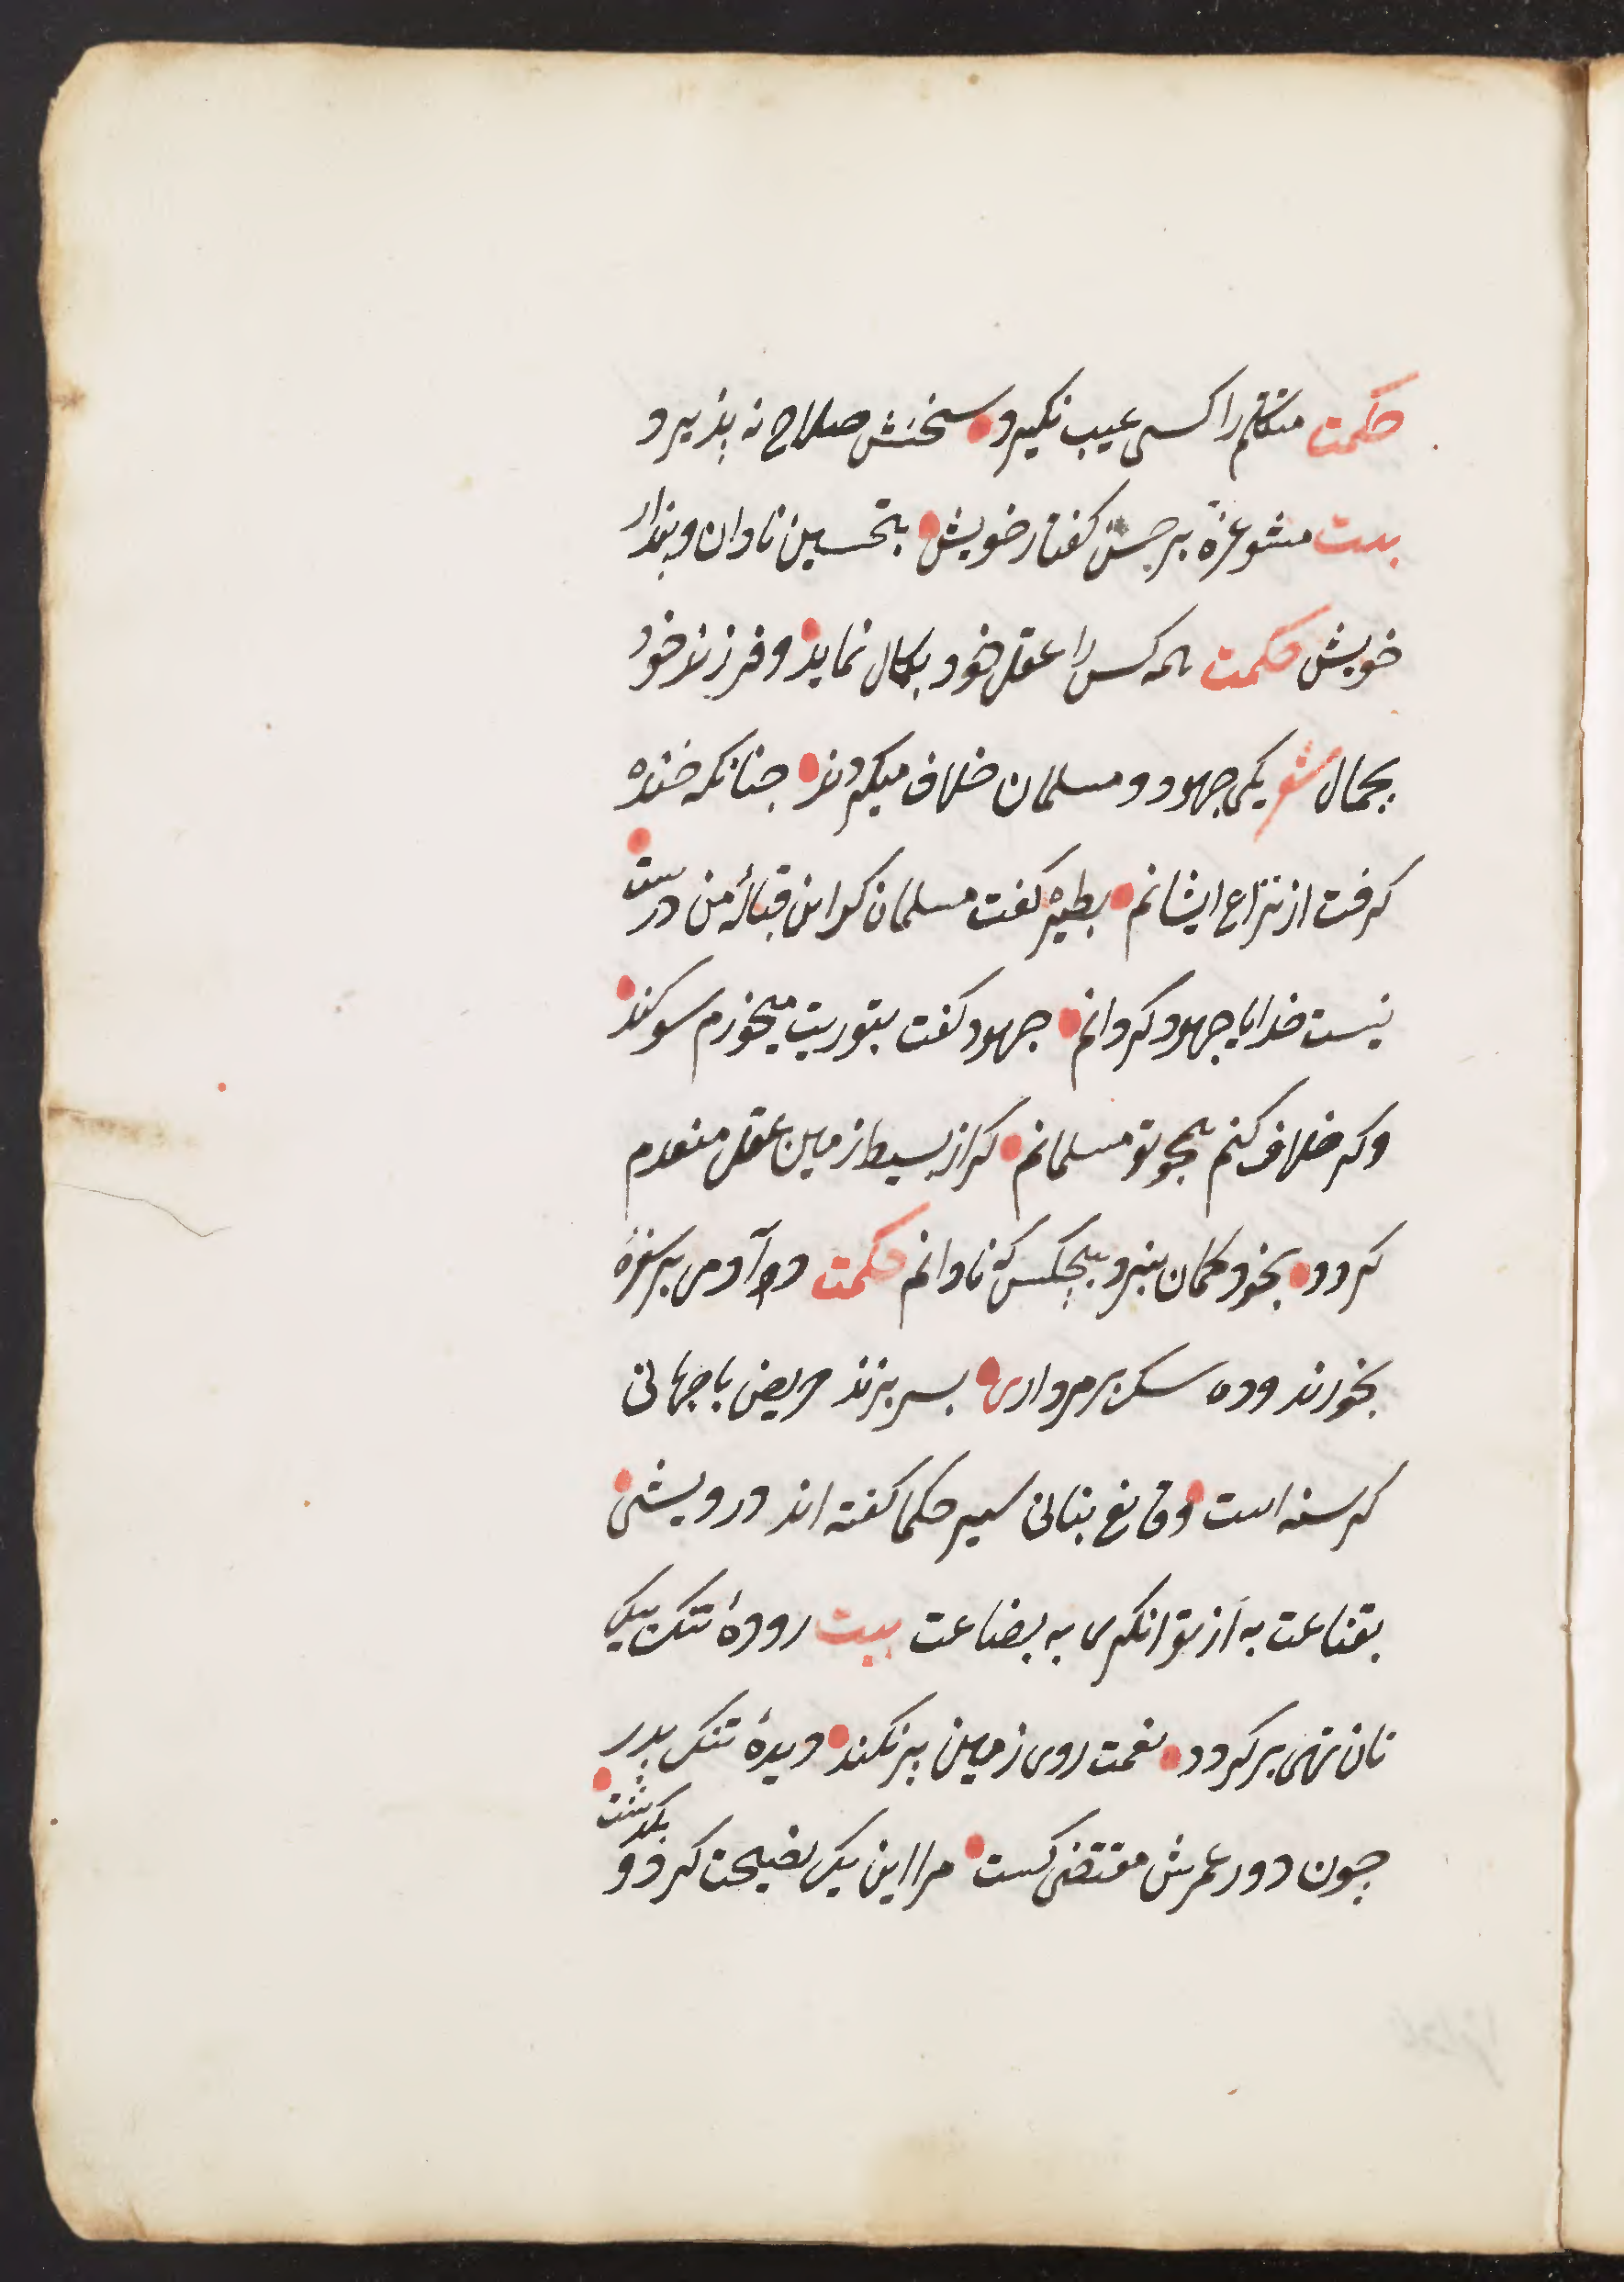 حکمت متکلم را کسی عیب نگیرد سخنش صلاح نه پذیرد
بیت مشو غرّه بر حسن گفتار خویش بتحسین نادان و پندار
خویش حکمت همه کس را عقل خود بکمال نماید و فرزند خود
بجمال شعر یکی جهود و مسلمان خلاف میکردند چنانکه خنده
گرفت از نزاع ایشانم بطیره گفت مسلمان گر این قبالۀ من درست
نیست خدایا جهود گردانم جهود گفت بتوریت میخورم سوگند
وگر خلاف کنم همچو تو مسلمانم گر از بسیط زمین عقل منعدم
گردد بخود گمان نبرد هیچکس که نادانم حکمت ده آدمی بر سفرۀ
بخورند و ده سک بر مرداری بسر نبرند حریص با جهانی
گرسنه است و قانع بنانی سیر حکما گفته اند درویشی
بقناعت به از توانگری به بضاعت بیت رودۀ تنک بیک
نان تهی پر گردد نعمت روی زمین پر نکند دیدۀ تنک پدر
چون دور عمرش منقضی گشت مرا این یک نصیحت کرد و بگذشت